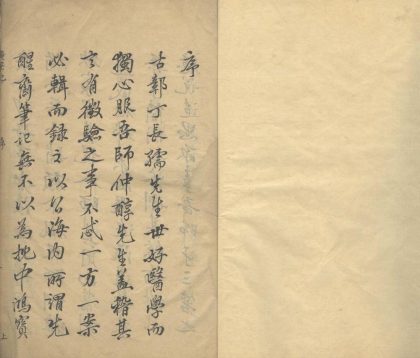 序
古鄣丁長孺先生世好醫學而
獨心服吾師仲醇先生蓋稽其
言有徵驗之事不忒一方一案
必輯而録之以公海内所謂先
醒齋筆記無不以為枕中鴻寳
序
上